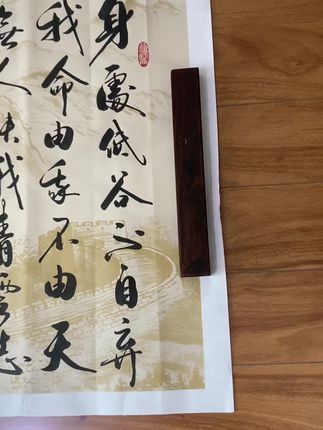 身處低谷不自弃
我命由我不由天
無人扶我青雲志